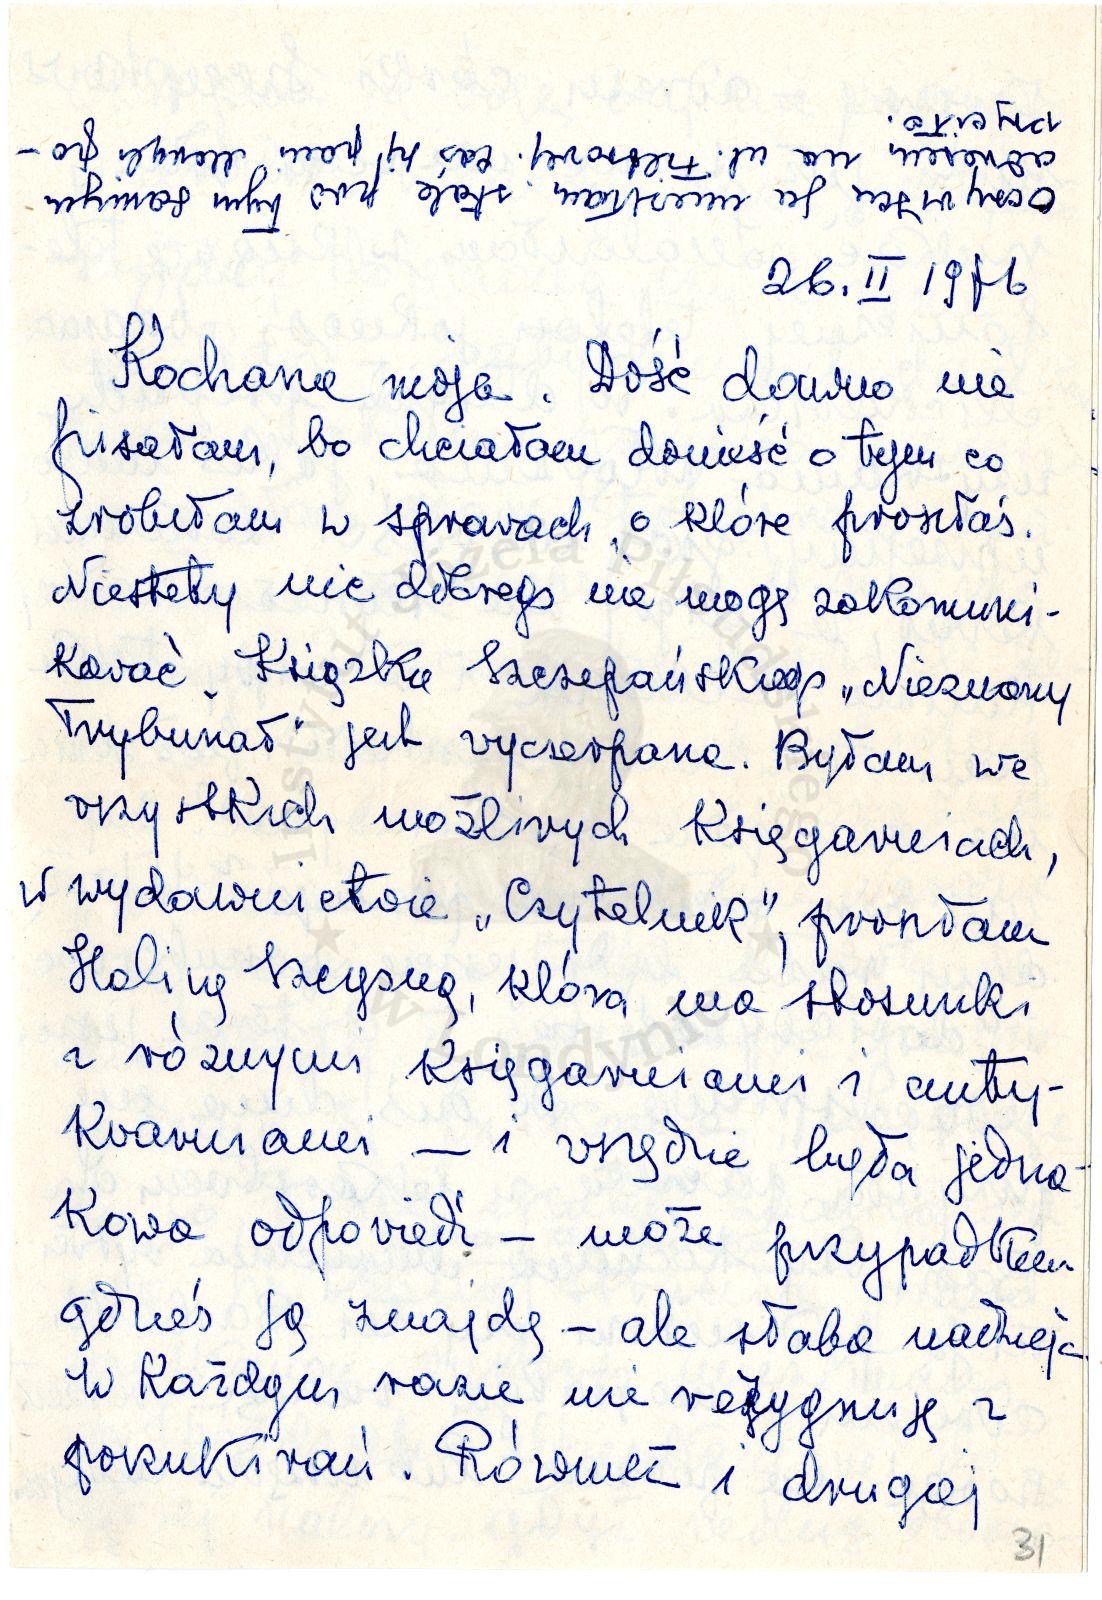 Oczywiście ja mieszkam stale pod tym samym
adresem na ul. Filtrowej. Coś tej pani
26. II 1976
Kochana moja. Dość dawno nie
pisałam, bo chciałam donieść o tym co
zrobiłam w sprawach, o które prosiłaś.
Niestety nic dobrego nie mogę zakomuni-
kować. Książka Szczepańskiego „Nieznany
Trybunał" jest wyczerpana. Byłam we
wszystkich możliwych księgarniach,
w wydawnictwie „Czytelnik", prosiłam
Halinę, która ma stosunki
z różnymi księgarniami i anty-
kwarniami — i wszędzie była jedna-
kowa odpowiedź — może przypadkiem
gdzieś ją znajdę — ale słaba nadzieja
W każdym razie nie rezygnuję z
poszukiwań. Również i drugiej
31
Instytut Józefa Piłsudskiego
w Londynie